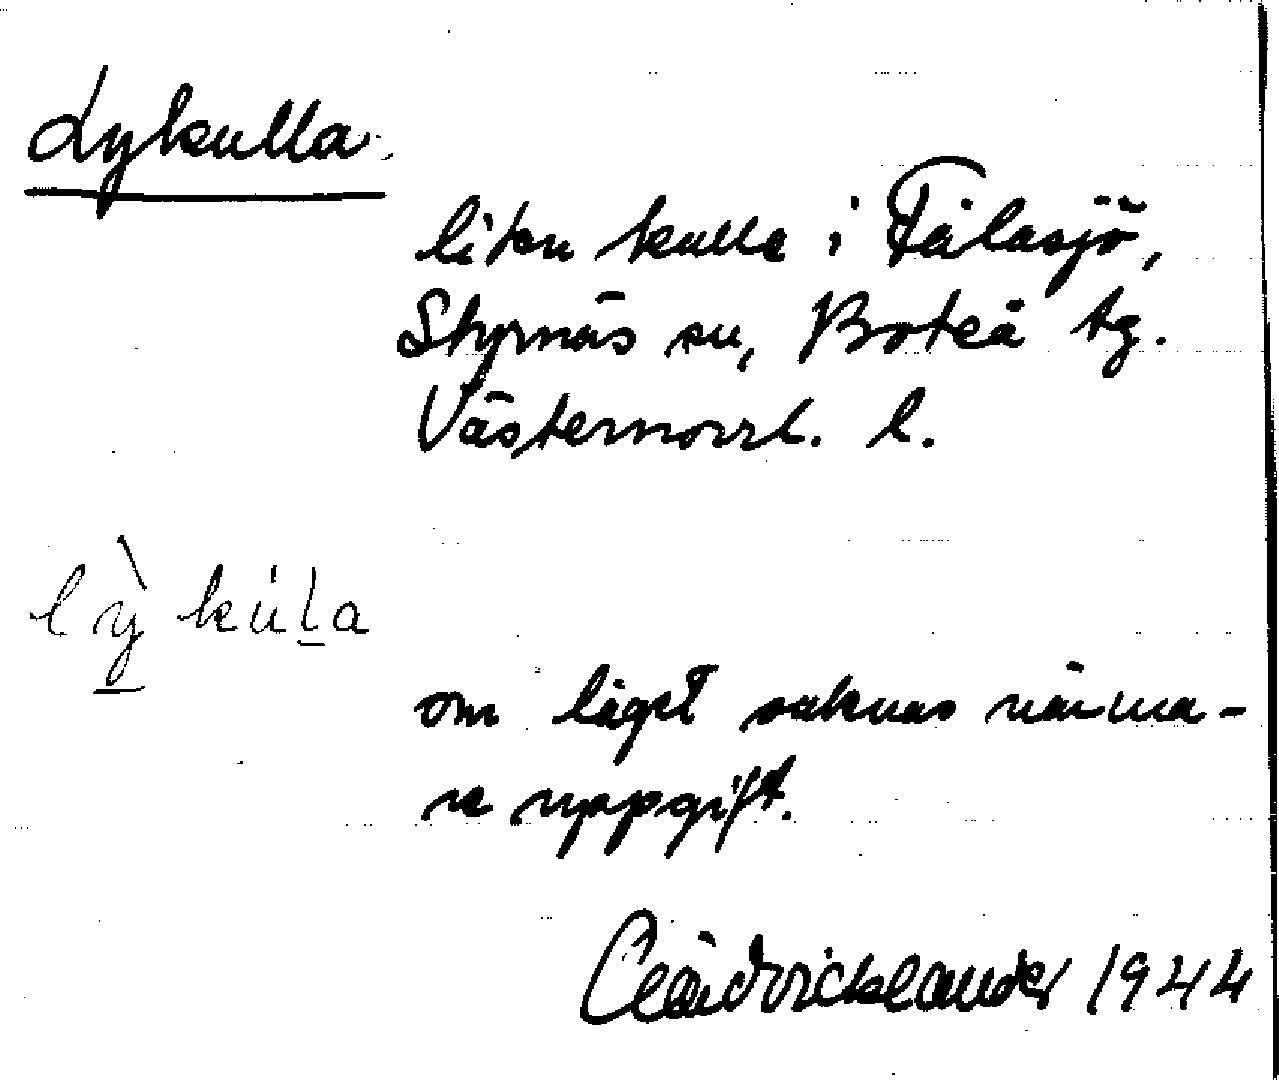 Lykulla
liten kulle i Fälasjö,
Styrnäs sn, Boteå tg.
Västernorrl. l.
lỳ kúla
om läget saknas närma-
re uppgift.
1944